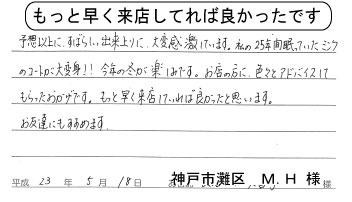 もっと早く来店してれば良かったです
予想以上に、すばらしい出来上りに、大変感激しています。私の25年間眠っていたミンク
のコートが大変身!! 今年の冬が楽しみです。お店の方に、色々とアドバイスして
もらったおかげです。もっと早く来店していれば良かったと思います。
お友達にもすすめます。
平成 23 年 5 月 18日 神戸市灘区 M.H 様 様